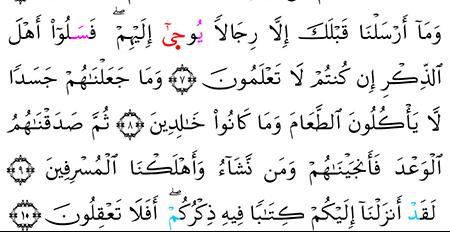 وَمَآ أَرْسَلْنَا قَبْلَكَ إِلَّا رِجَالاً يُوحَىٰٓ إِلَيْهِمْ ۖ فَسَلُوٓاْ أَهْلَ
ٱلذِّكْرِ إِن كُنتُمْ لَا تَعْلَمُونَ ﴿٧﴾ وَمَا جَعَلْنَٰهُمْ جَسَدًا
لَّا يَأْكُلُونَ ٱلطَّعَامَ وَمَا كَانُواْ خَٰلِدِينَ ﴿٨﴾ ثُمَّ صَدَقْنَٰهُمُ
ٱلْوَعْدَ فَأَنجَيْنَٰهُمْ وَمَن نَّشَآءُ وَأَهْلَكْنَا ٱلْمُسْرِفِينَ ﴿٩﴾
لَقَدْ أَنزَلْنَآ إِلَيْكُمْ كِتَٰبًا فِيهِ ذِكْرُكُمْ ۖ أَفَلَا تَعْقِلُونَ ﴿١٠﴾